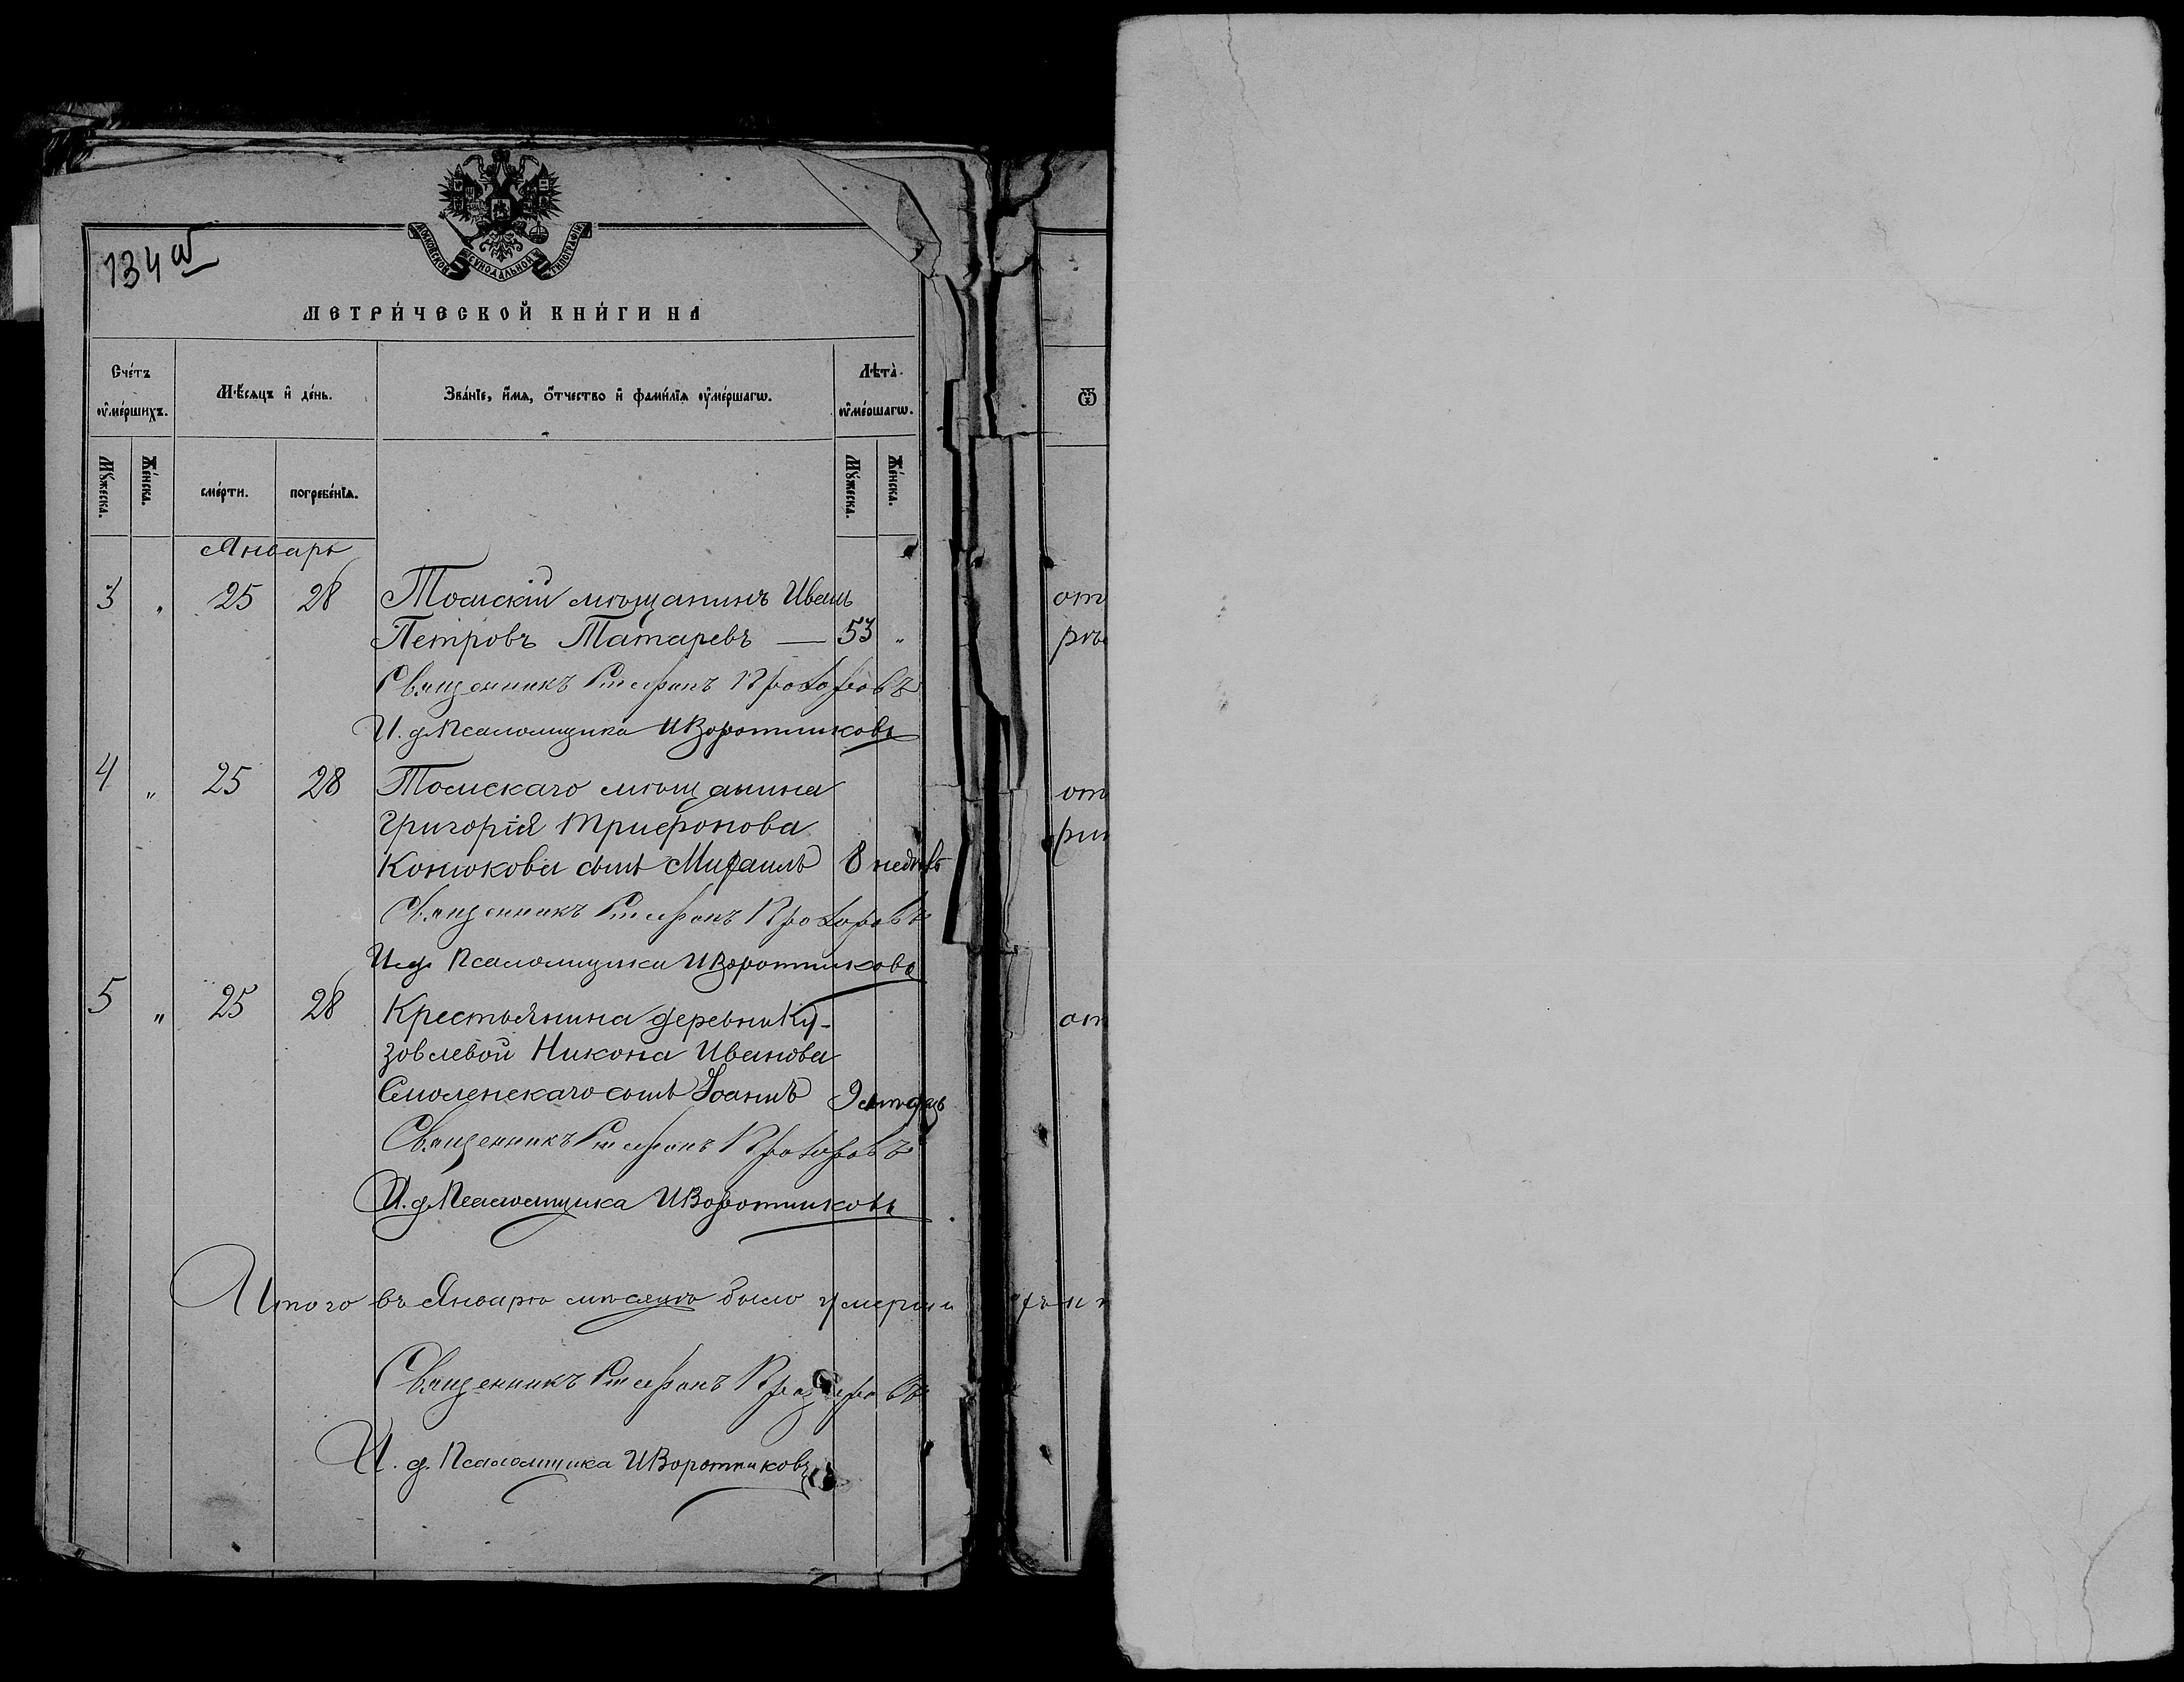 134 об
МОСКОВСКОЙ СѴНОДАЛЬНОЙ ТИПОГРАФІИ
МЕТРИ́ЧЕСКОЙ КНИ́ГИ НА
Сче́тъ ᲂу҆ме́ршихъ.
Мѣ́сяцъ и҆ де́нь.
Зва́нїе, и҆́мѧ, ѻ҆́тчество и҆ фами́лїѧ ᲂу҆ме́ршагѡ.
Лѣ́та ᲂу҆ме́ршагѡ.
Мꙋ́жеска.
Же́нска.
сме́рти.
погребе́нїѧ.
Мꙋ́жеска.
Же́нска.
Ѿ
Январь
3 " 25 28 Томскій мѣщанинъ Иванъ
Петровъ Татаревъ — 53 "
Священникъ Стефанъ Прохоровъ
И. д. Псаломщика И Воротниковъ
4 " 25 28 Томскаго мѣщанина
Григорія Трифонова
Конюкова сынъ Михаилъ 8 недѣль
Священникъ Стефанъ Прохоровъ
И. д. Псаломщика И Воротниковъ
5 " 25 28 Крестьянина деревни Ку-
зовлевой Никона Иванова
Смоленскаго сынъ Іоаннъ 9 мѣсяц
Священникъ Стефанъ Прохоровъ
И. д. Псаломщика И Воротниковъ
Итого въ Январѣ мѣсяцѣ было умерши
Священникъ Стефанъ Прохоровъ
И. д. Псаломщика И Воротниковъ
от
от
от